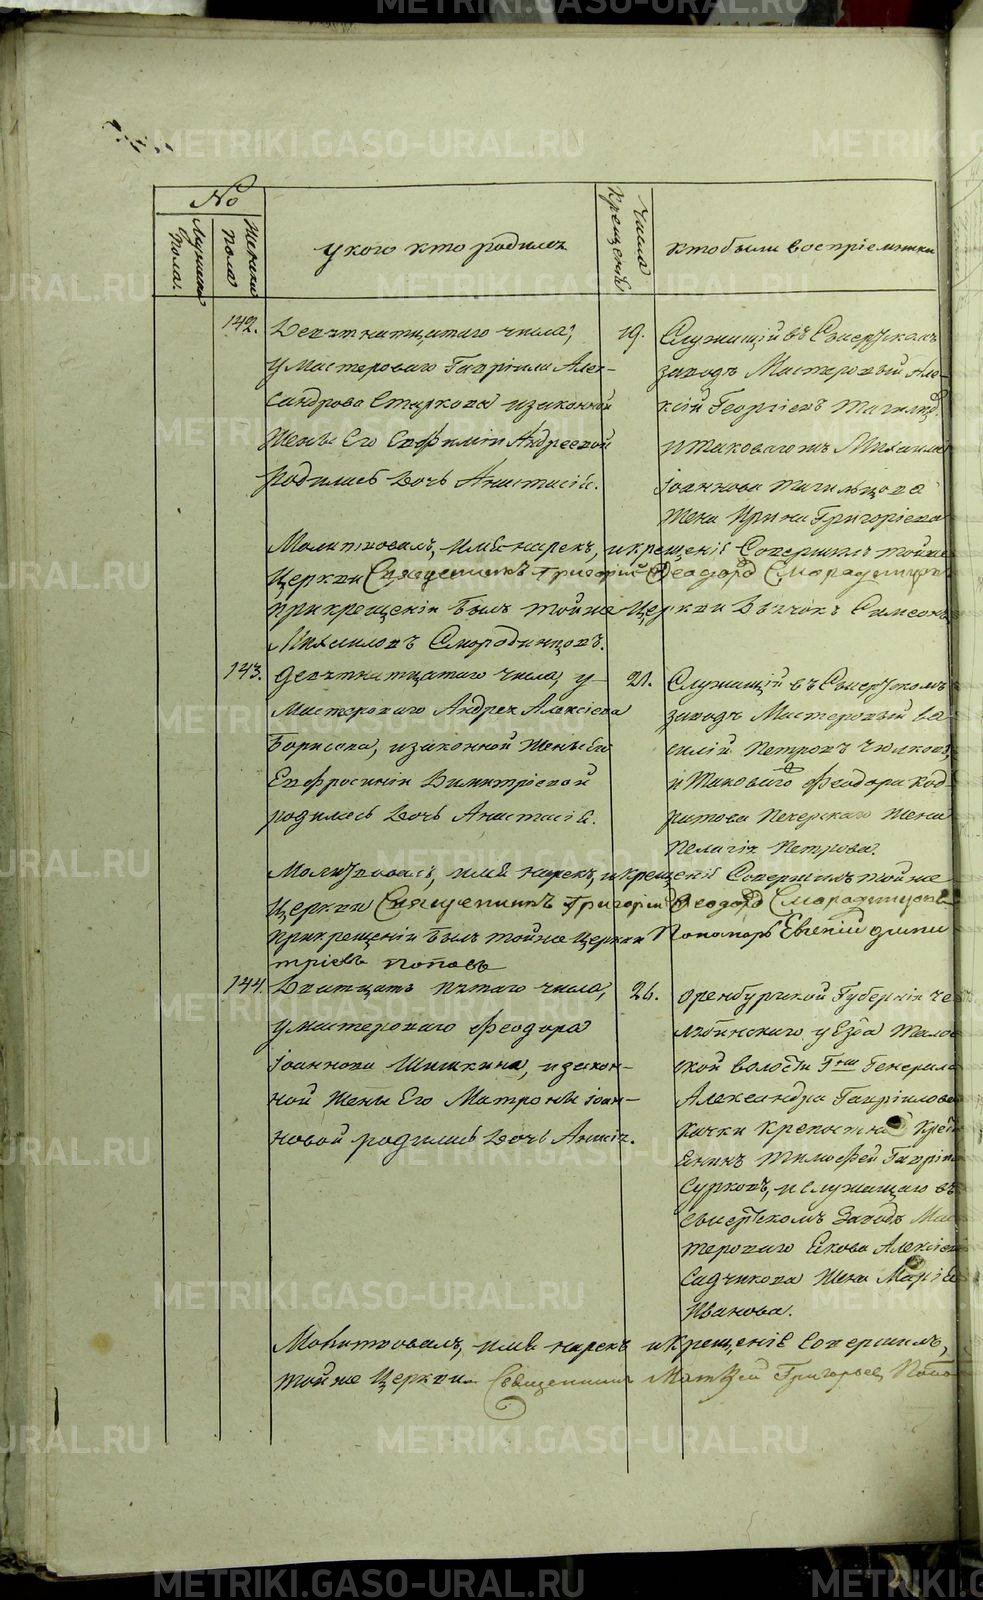 METRIKI.GASO-URAL.RU
№
Мужеска
пола.
Женска
пола
у кого кто родился
Числа
крещенія
кто были воспріемники
142.
Девятнатцатаго числа,
у мастероваго Гавріила Алек-
сандрова Старкова изаконной
жены Его Евфиміи Андреевой
родилась дочь Анастасія.
19.
Служащій въ Сысертскомъ
заводѣ Мастеровый Але-
ксій Георгіевъ
и таковагожъ Михаила
Іоаннова Тагильцова
жена Ирина Григоріева
Молитвовалъ, имя нарекъ, и крещеніе Совершилъ тойже
Церкви Священникъ Григорій Феодоровъ Смородинцовъ
при крещеніи былъ тойже Церкви Дьячокъ Симеонъ
Михаиловъ Смородинцовъ.
143.
Девятнатцатаго числа, у
Мастероваго Андрея Алексіева
Борисова, изаконной жены Его
Евфросиніи Димитріевой
родилась дочь Анастасія.
21.
Служащій въ Сысертскомъ
заводѣ Мастеровый Ва-
силій Петровъ
и таковаго Феодора Код-
ратова Печерскаго жена
Пелагія Петрова.
Молитвовалъ, имя нарекъ, и крещеніе Совершилъ тойже
Церкви Священникъ Григорій Феодоровъ Смородинцовъ
при крещеніи былъ тойже Церкви Пономарь Евгеній Дими
тріевъ Поповъ
144.
Дватцать пятаго числа,
у мастероваго Феодора
Іоаннова Шишкина, изакон-
ной жены Его Матроны Іоан-
новой родилась дочь Анисія.
26.
Оренбургской Губерніи Че
лябинскаго уезда
ской волости Гжи Генерала
Александра Гавріилова
Качки крепостной Крест
янинъ Тимофей Гавріи
Сурковъ, и служащаго въ
Сысертскомъ Заводѣ Мас
тероваго Якова Алексіев
Садчикова жена Марія
Иванова.
Молитвовалъ, имя нарекъ и крещеніе Совершилъ,
тойже Церкви Священникъ Матвей Григорьев Попо